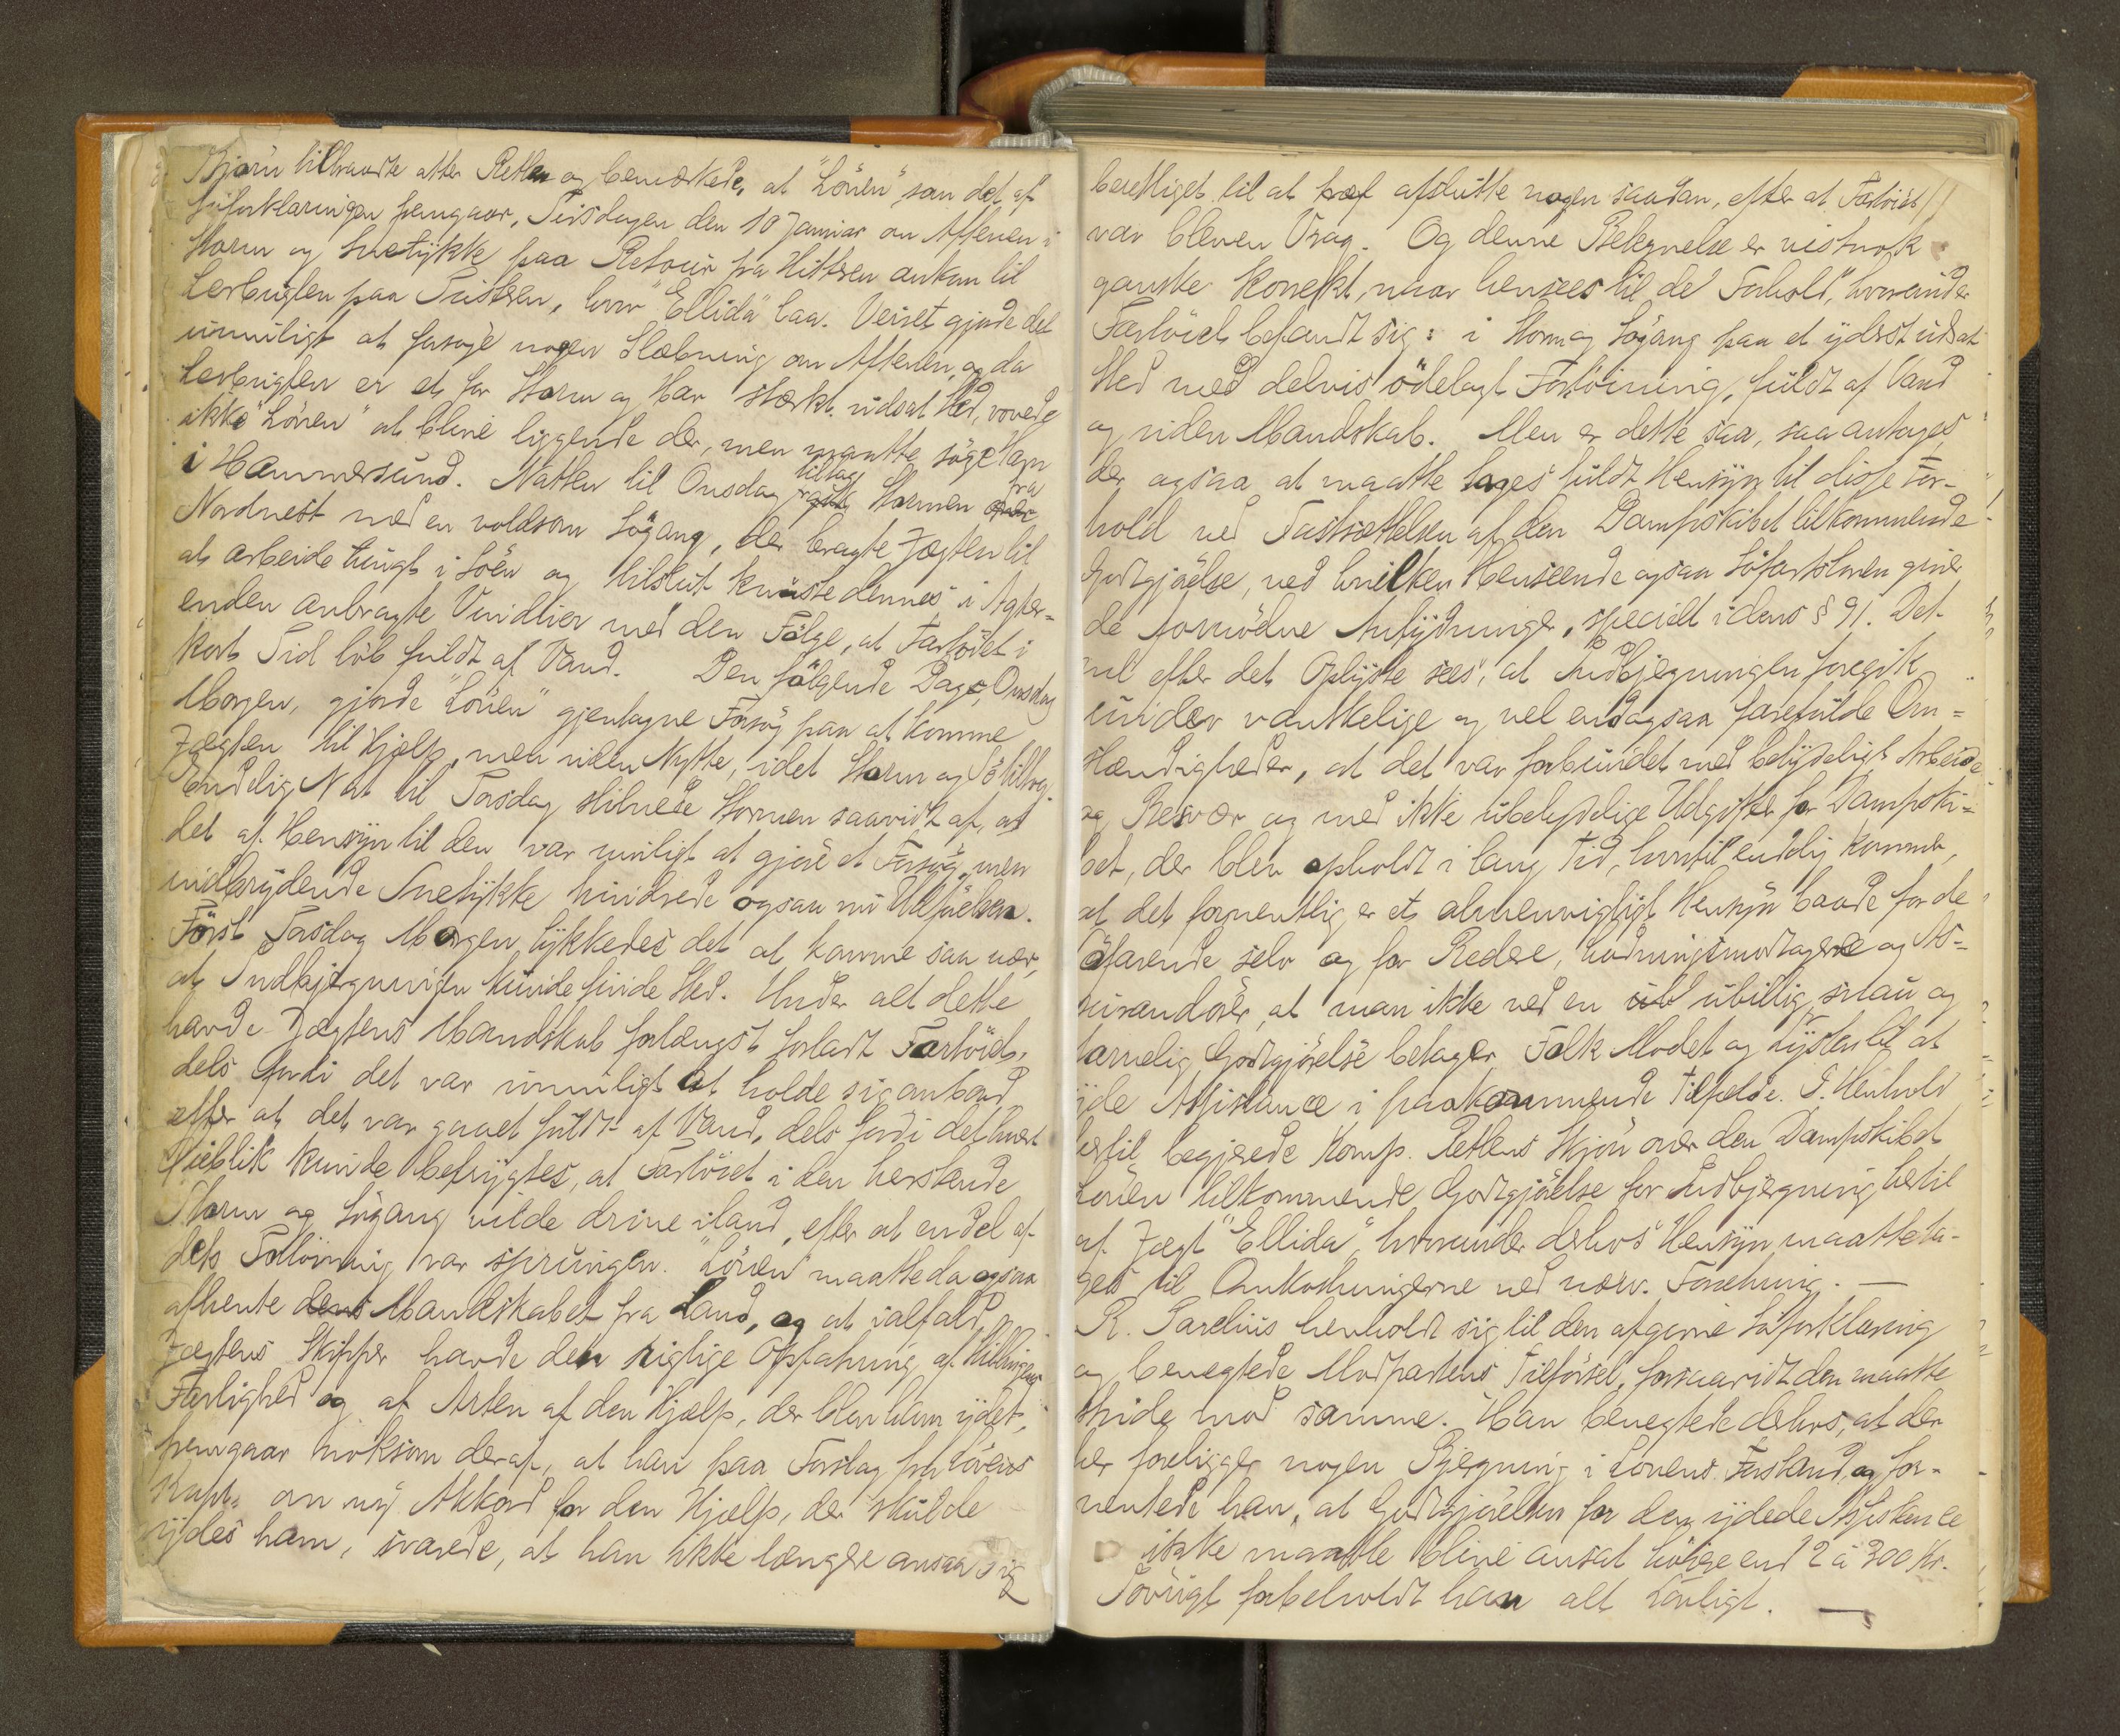 Bjørn tiltraadte atter Retten og bemærkede, at "Löven" som det af
Søforklaringen fremgaar, Tirsdagen den 10 Januar om Aftenen i
Storm og Snetykke paa Retour fra Hitteren ankom til
Lerbugten paa Tusteren, hvor "Ellida" laa. Veiret gjorde det
umuligt at forsøge nogen Slæbning om Aftenen, og da
Lerbugten er et for Storm og Hav stærkt udsat Sted, vovede
ikke "Löven" at blive liggende der, men maatte söge Havn
i Hammersund. Natten til Onsdag tiltog Stormen fra
Nordvest med en voldsom Sögang, der bragte Jægten til
at arbeide tungt i Söen og tilslut knuste dennes i Agter=
enden anbragte Vinduer med den Fölge, at Fartöiet i
kort Tid löb fuldt af Vand. Den fölgende Dag, Onsdag
Morgen, gjorde "Löven" gjentagne Forsög paa at komme
Jægten til Hjælp, men uden Nytte, idet Storm og Sö tiltog.
Endelig Nat til Torsdag stilnede Stormen saavidt af, at
det af Hensyn til den var muligt at gjöre et Forsög, men
indbrydende Snetykke hindrede ogsaa nu Udförelsen.
Först Torsdag Morgen lykkedes det at komme saa nær,
at Indbjergningen kunde finde Sted. Under alt dette
havde Jægtens Mandskab forlængst forladt Fartöiet,
dels fordi det var umuligt at holde sig ombord
efter at det var gaaet fuldt af Vand, dels fordi det hvert
Öieblik kunde befrygtes, at Fartöiet i den herskende
Storm og Sögang vilde drive iland, efter at en del af
dets Fortöining var sprungen. "Löven" maatte da ogsaa
afhente dens Mandskabet fra Land, og at ialfald
Jægtens Skipper havde den rigtige Opfatning af Stillingens
Farlighed og af Arten af den Hjælp, der blev ham ydet,
fremgaar noksom deraf, at han paa Forslag fra Lövens
Kapt. om nogen Akkord for den Hjælp, der skulde
ydes ham, svarede, at han ikke længere ansaa sig
berettiget til at træf afslutte nogen saadan, efter at Fartöiet
var bleven Vrag. Og denne Betegnelse er vistnok
ganske korrekt, naar hensees til de Forhold, hvorunder
Fartöiet befandt sig: i Storm og Sögang paa et yderst udsat
Sted med delvis ödelagt Fortöining, fuldt af Vand
og uden Mandskab. Men er dette saa, saa antages
der ogsaa at maatte tages fuldt Hensyn til disse For-
hold ved Fastsættelsen af den Dampskibet tilkommende
Godtgjörelse, ved hvilken Henseende ogsaa Söfartsloven giver
de fornödne Antydninger, specielt i dens § 91. Det
vil efter det Oplyste sees, at Indbjergningen foregik
under vanskelige og vel endogsaa farefulde Om=
stændigheder, at det var forbundet med betydeligt Arbeide
og Besvær og med ikke ubetydelige Udgifter for Dampski=
bet, der blev opholdt i lang Tid, hvortil endelig kommer,
at det formentlig er et almenvigtigt Hensyn baade for de
Söfarende selv og for Redere, Ladningsmodtagere og As=
surandörer, at man ikke ved en ubl ubillig, snau og
tarvelig Godtgjörelse betager Folk Modet og Lysten til at
yde Assistance i paakommende Tilfælde. I Henhold
hertil begjerede Komp. Rettens Skjön over den Dampskibet
Löven tilkommende Godtgjörelse for Indbjergning hertil
af Jægt "Ellida", hvorunder derhos Hensyn maatte ta-
ges til Omkostningerne ved nærv. Forretning. —
R. Parelius henholdt sig til den afgivne Söforklaring
og benegtede Modpartens Tilförsel, forsaavidt den maatte
stride mod samme. Han benegtede derhos, at der
her foreligger nogen Bjergning i Lovens Forstand, og for-
ventede han, at Godtgjörelsen for den ydede Assistance
ikke maatte blive ansat höiere end 2 à 300 Kr.
Iövrigt forbeholdt han alt Lovligt. —